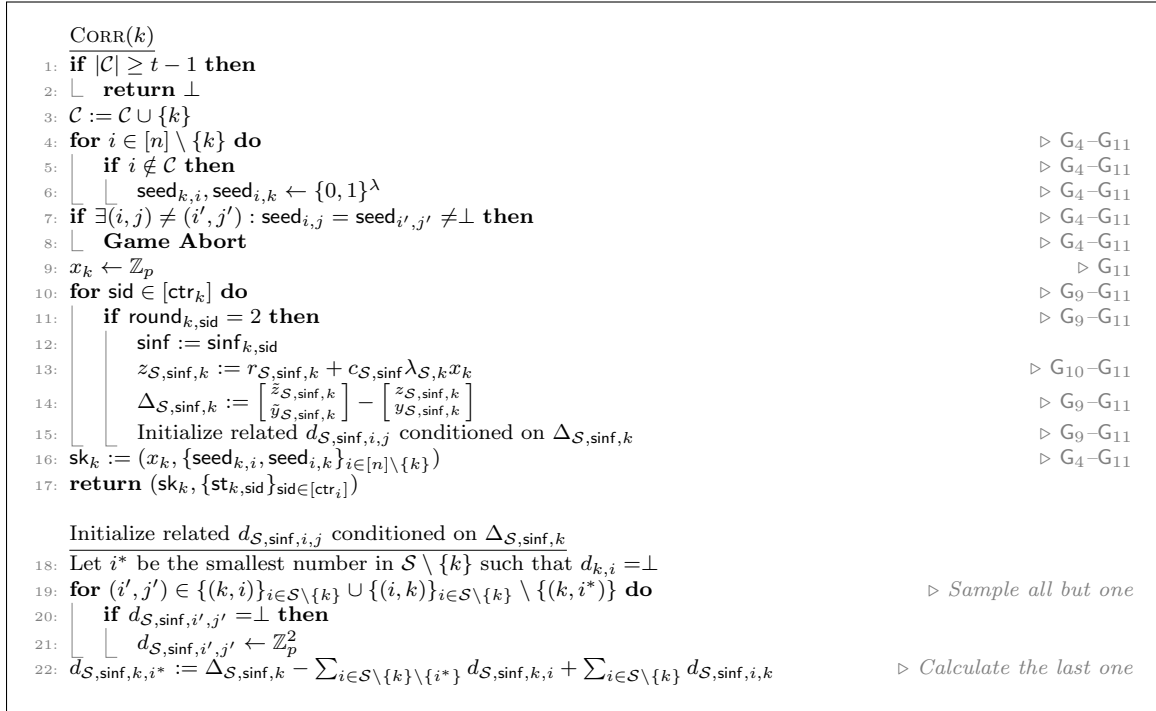 CORR(k)
1: if |𝒞| ≥ t − 1 then
2: return ⊥
3: 𝒞 := 𝒞 ∪ {k}
4: for i ∈ [n] \ {k} do ▷ G₄–G₁₁
5: if i ∉ 𝒞 then ▷ G₄–G₁₁
6: seed_{k,i}, seed_{i,k} ← {0, 1}^λ ▷ G₄–G₁₁
7: if ∃(i, j) ≠ (i′, j′) : seed_{i,j} = seed_{i′,j′} ≠⊥ then ▷ G₄–G₁₁
8: Game Abort ▷ G₄–G₁₁
9: x_k ← ℤ_p ▷ G₁₁
10: for sid ∈ [ctr_k] do ▷ G₉–G₁₁
11: if round_{k,sid} = 2 then ▷ G₉–G₁₁
12: sinf := sinf_{k,sid}
13: z_{𝒮,sinf,k} := r_{𝒮,sinf,k} + c_{𝒮,sinf} λ_{𝒮,k} x_k ▷ G₁₀–G₁₁
14: Δ_{𝒮,sinf,k} := [z̃_{𝒮,sinf,k} ỹ_{𝒮,sinf,k}] − [z_{𝒮,sinf,k} y_{𝒮,sinf,k}] ▷ G₉–G₁₁
15: Initialize related d_{𝒮,sinf,i,j} conditioned on Δ_{𝒮,sinf,k} ▷ G₉–G₁₁
16: sk_k := (x_k, {seed_{k,i}, seed_{i,k}}_{i∈[n]\{k}}) ▷ G₄–G₁₁
17: return (sk_k, {st_{k,sid}}_{sid∈[ctr_i]})
Initialize related d_{𝒮,sinf,i,j} conditioned on Δ_{𝒮,sinf,k}
18: Let i* be the smallest number in 𝒮 \ {k} such that d_{k,i} =⊥
19: for (i′, j′) ∈ {(k, i)}_{i∈𝒮\{k}} ∪ {(i, k)}_{i∈𝒮\{k}} \ {(k, i*)} do ▷ Sample all but one
20: if d_{𝒮,sinf,i′,j′} =⊥ then
21: d_{𝒮,sinf,i′,j′} ← ℤ_p^2
22: d_{𝒮,sinf,k,i*} := Δ_{𝒮,sinf,k} − ∑_{i∈𝒮\{k}\{i*}} d_{𝒮,sinf,k,i} + ∑_{i∈𝒮\{k}} d_{𝒮,sinf,i,k} ▷ Calculate the last one